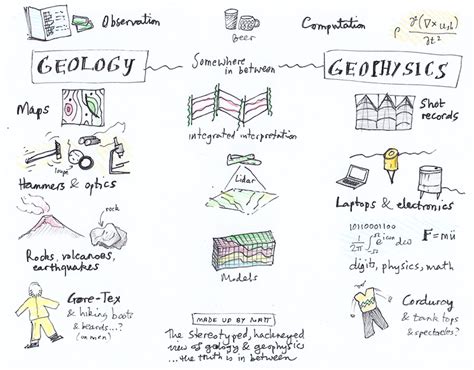 Observation
Beer
Computation
ρ ∂²(∇ × u,h) / ∂t²
GEOLOGY
Somewhere
in between
GEOPHYSICS
Maps
Integrated interpretation
Shot
records
loupe
Hammers & optics
Lidar
Laptops & electronics
rock
Rocks, volcanoes,
earthquakes
Models
10110001100
F = mü
digits, physics, math
Gore-Tex
& hiking boots
& beards...?
(on men)
MADE UP BY MATT
The stereotyped, hackneyed
view of geology & geophysics
...the truth is in between
Corduroy
& tank tops
& spectacles?